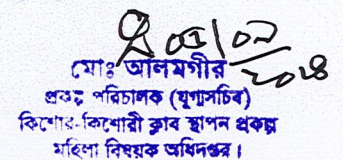 ০৫/০৯/২০২৪
মোঃ আলমগীর
প্রকল্প পরিচালক (যুগ্মসচিব)
কিশোর-কিশোরী ক্লাব স্থাপন প্রকল্প
মহিলা বিষয়ক অধিদপ্তর।